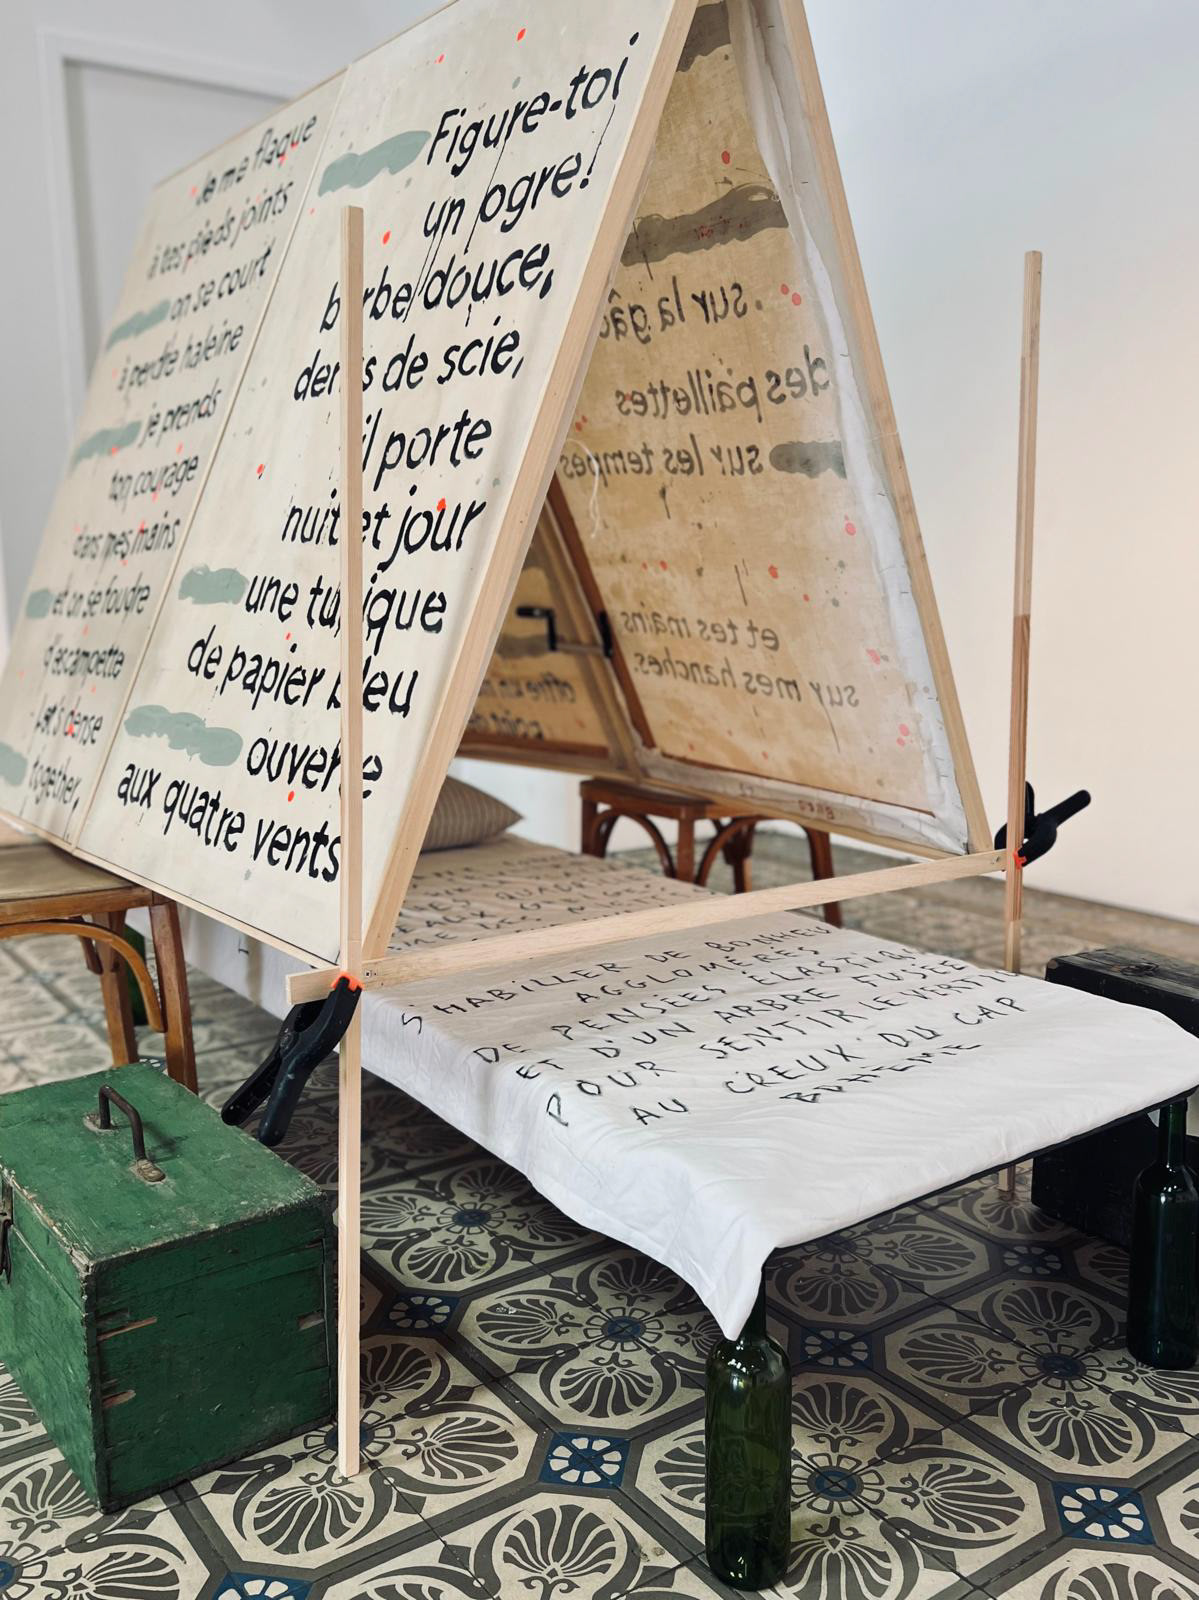 Je me flaque
à tes pieds joints
on se court
à perdre haleine
je prends
ton courage
dans mes mains
et on se foudre
d'escampette
Let's dense
together,
Figure-toi
un ogre!
barbe douce,
dents de scie,
il porte
nuit et jour
une tunique
de papier bleu
ouverte
aux quatre vents
sur la
des paillettes
sur les tempes
et tes mains
sur mes hanches.
S'HABILLER DE BONHEUR
AGGLOMÉRÉS
DE PENSÉES ÉLASTIQUES
ET D'UN ARBRE FUSÉE
POUR SENTIR LE VERTIGE
AU CREUX DU CAP
BOHÈME